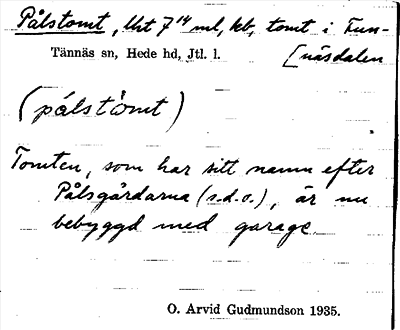 Pålstomt, lht 7¹⁴ ml, kb, tomt i Fun-
Tännäs sn, Hede hd, Jtl. l. [näsdalen
(pálstòmt)
Tomten, som har sitt namn efter
Pålsgårdarna (s.d.o.), är nu
bebyggd med garage
O. Arvid Gudmundson 1935.